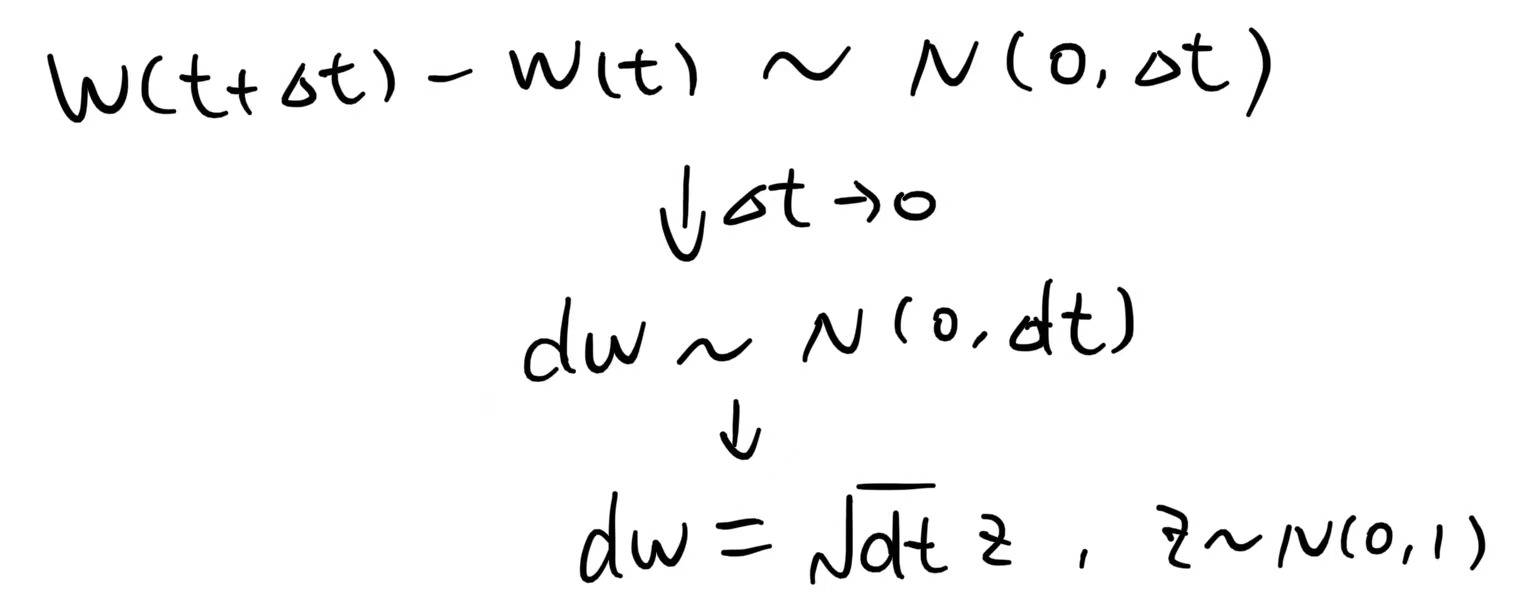 W(t+Δt) - W(t) ~ N(0, Δt)
↓ Δt → 0
dw ~ N(0, dt)
↓
dw = √dt z , z ~ N(0,1)